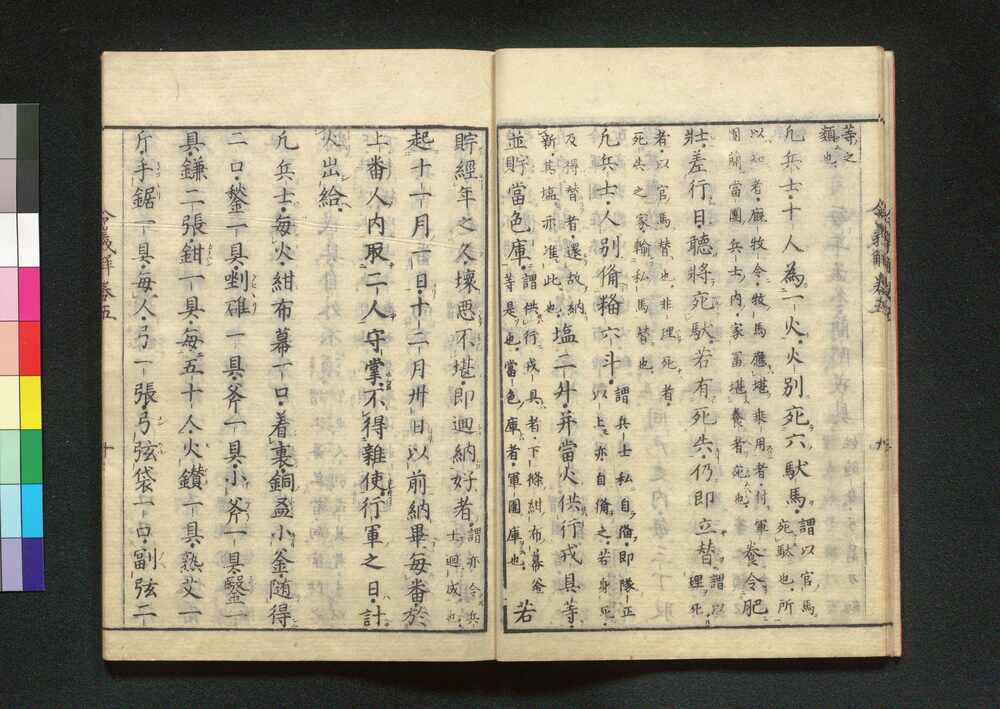 等之
類也
凡兵士十人為一火火別充六馱馬
謂以官馬
充駄也所
以知者廐牧令牧馬應堪乗用者付軍
團簡當團兵士内家冨堪養者充也
養令肥
壯差行日聽將充馱若有死失仍即立替
謂以
理死
者以官馬替也非理死者
死失之家輸私馬替也
凡兵士人別備糒六斗
謂兵士私自備即隊正
以上亦自備之若身死
及得替者還故納
新其塩亦准此也
塩二升并當火供行戎具等
並貯當色庫
謂供行戎具者下條紺布幕釜
等是也當色庫者軍團庫也
若
貯經年之久壞悪不堪即廻納好者
謂亦令兵
士興成也
起十一月一日十二月卅日以前納畢毎番於
上番人内取二人守掌不得雜使行軍之日計
火出給
凡兵士毎火紺布幕一口着裏銅盆小釜随得
二口鍬一具剉碓一具斧一具小斧一具鑿一
具鎌二張鉗一具毎五十人火鑽一具熟艾一
斤手鋸一具毎人弓一張弓弦袋一口副弦二
令義解 卷五
十